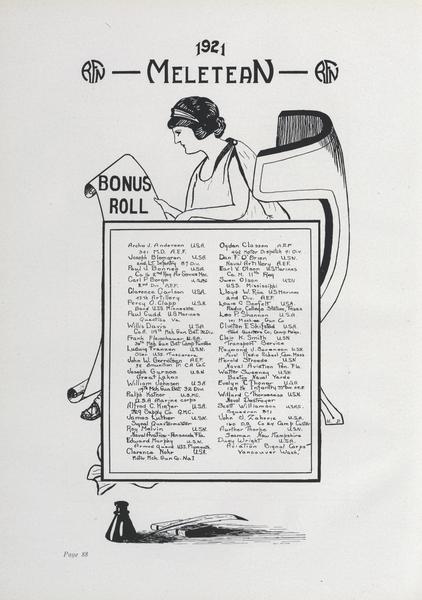 1921
RFN — MELETEAN — RFN
BONUS
ROLL
Archo J. Andersen U.S.A.
321 M.D. A.E.F.
Joseph Blomgran U.S.A.
2nd Lt. Infantry 87 Div.
Paul U. Bonney U.S.A.
Carl P. Borge
2nd Div. A.E.F.
Clarence Carlson U.S.A.
Artillery
Percy O. Clapp U.S.N.
Band U.S.S. Minnesota
Paul Cudd U.S. Marines
Quantico Va.
Willis Davis U.S.A.
Co. A. 119th Mch. Gun Bat. 32 Div.
Frank Fleischauer U.S.A.
Ludwig Franzen U.S.N.
Oiler U.S.S. Tuscarora
John W. Gerritsen A.E.F.
Joseph Gurson U.S.N.
Great Lakes
William Johnson U.S.A.
Mch. Gun Bat. 32 Div.
Ralph Kolner U.S.M.C.
U.S.A. Marine Corps
Alfred C. Kiefer U.S.A.
329 Supply Co. Q.M.C.
James Luther U.S.N.
Signal Quartermaster
Roy Melvin U.S.N.
Naval Aviation - Pensacola Fla.
Edward Murphy U.S.N.
Armed Guard U.S.S. Plymouth
Clarence Nohr U.S.A.
Mch. Gun Co. No. 1
Ogden Classon A.E.F.
462 Motor Dispatch 91 Div.
Dan F. O'Brien U.S.N.
Naval Artillery A.E.F.
Earl V. Olson U.S. Marines
Co. M. 11th Reg.
Swen Olson U.S.N.
U.S.S. Mississippi
Lloyd W. Rice U.S. Marines
2nd Div. A.E.F.
Louis C. Senfelt U.S.A.
Radio, College Station, Texas
Leo P. Shannon U.S.A.
101 Machine Gun Co
Clinton E. Skifstad U.S.A.
Head Quarters Co. Camp
Clair K. Smith U.S.N.
Transport Service
Raymond J. Sorenson U.S.N.
Naval Radio School Cam. Mass.
Harold Stroede U.S.N.
Naval Aviation Pen. Fla.
Walter Suvenes U.S.N.
Boston Naval Yards
Evelyn E. Thoner U.S.A.
128th Infantry 32 Div. A.E.F.
Willard C. Thorsness U.S.N.
Naval Destroyer
Scott Williamson U.S.M.C.
Squadron
John O. Zahorik U.S.A.
160 D.B. Co. Camp Custer
Aurther Thorpe U.S.N.
Seaman New Hampshire
Duey Wright U.S.A.
Aviation Signal Corps
Vancouver Wash.
Page 88